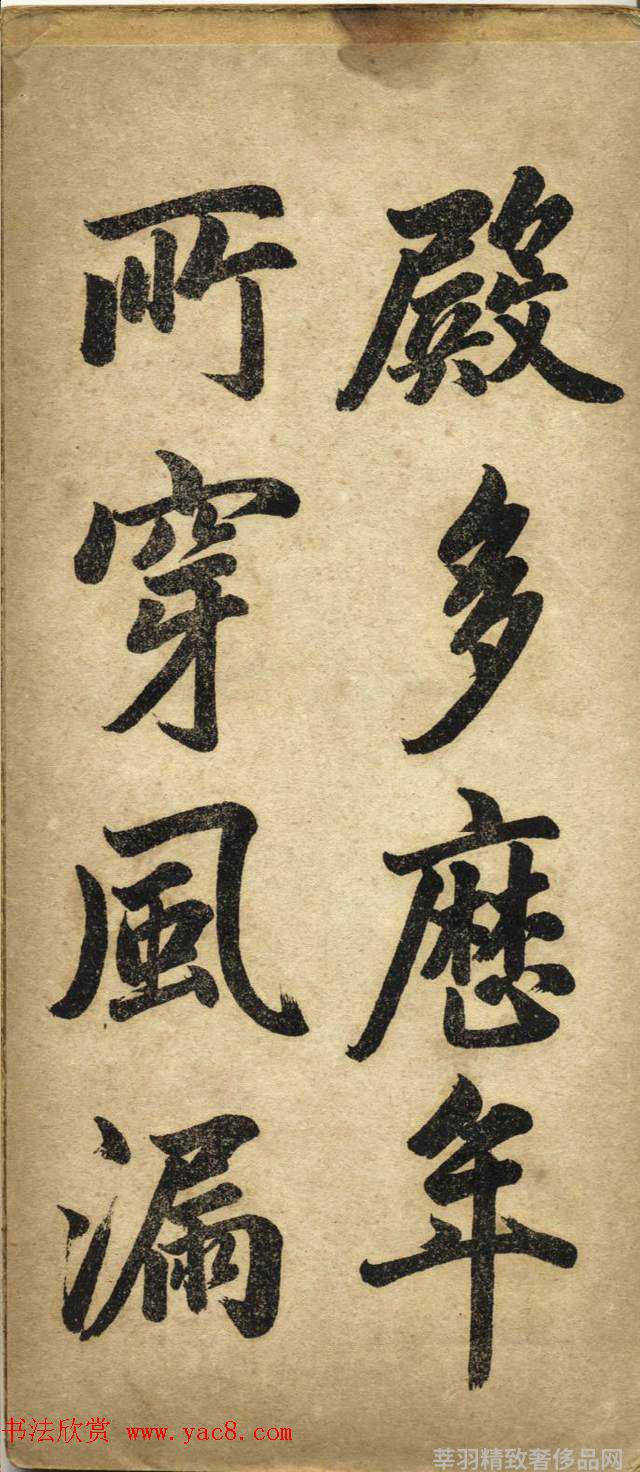 殿多歷年
所穿風漏
书法欣赏 www.yac8.com
莘羽精致奢侈品网